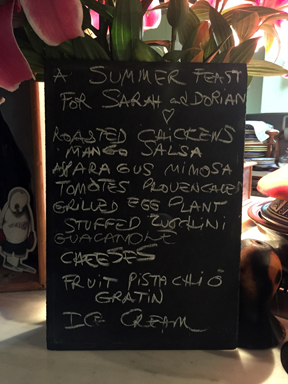 A SUMMER FEAST
FOR SARAH and DORIAN
ROASTED CHICKENS
MANGO SALSA
ASPARAGUS MIMOSA
TOMOTES PROVENCALES
GRILLED EGG PLANT
STUFFED ZUCCHINI
GUACAMOLE
CHEESES
FRUIT PISTACHIO
GRATIN
ICE CREAM